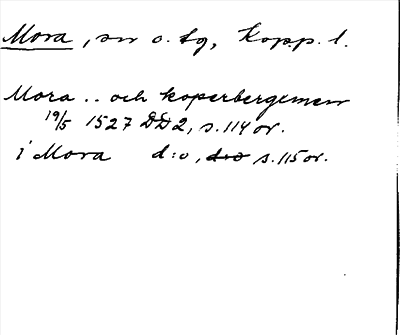 Mora, sn o. tg, Kopp. l.
Mora .. och koperbergxmen
19/5 1527 DD2, s. 114 or.
i Mora d:o, d:o s. 115 or.